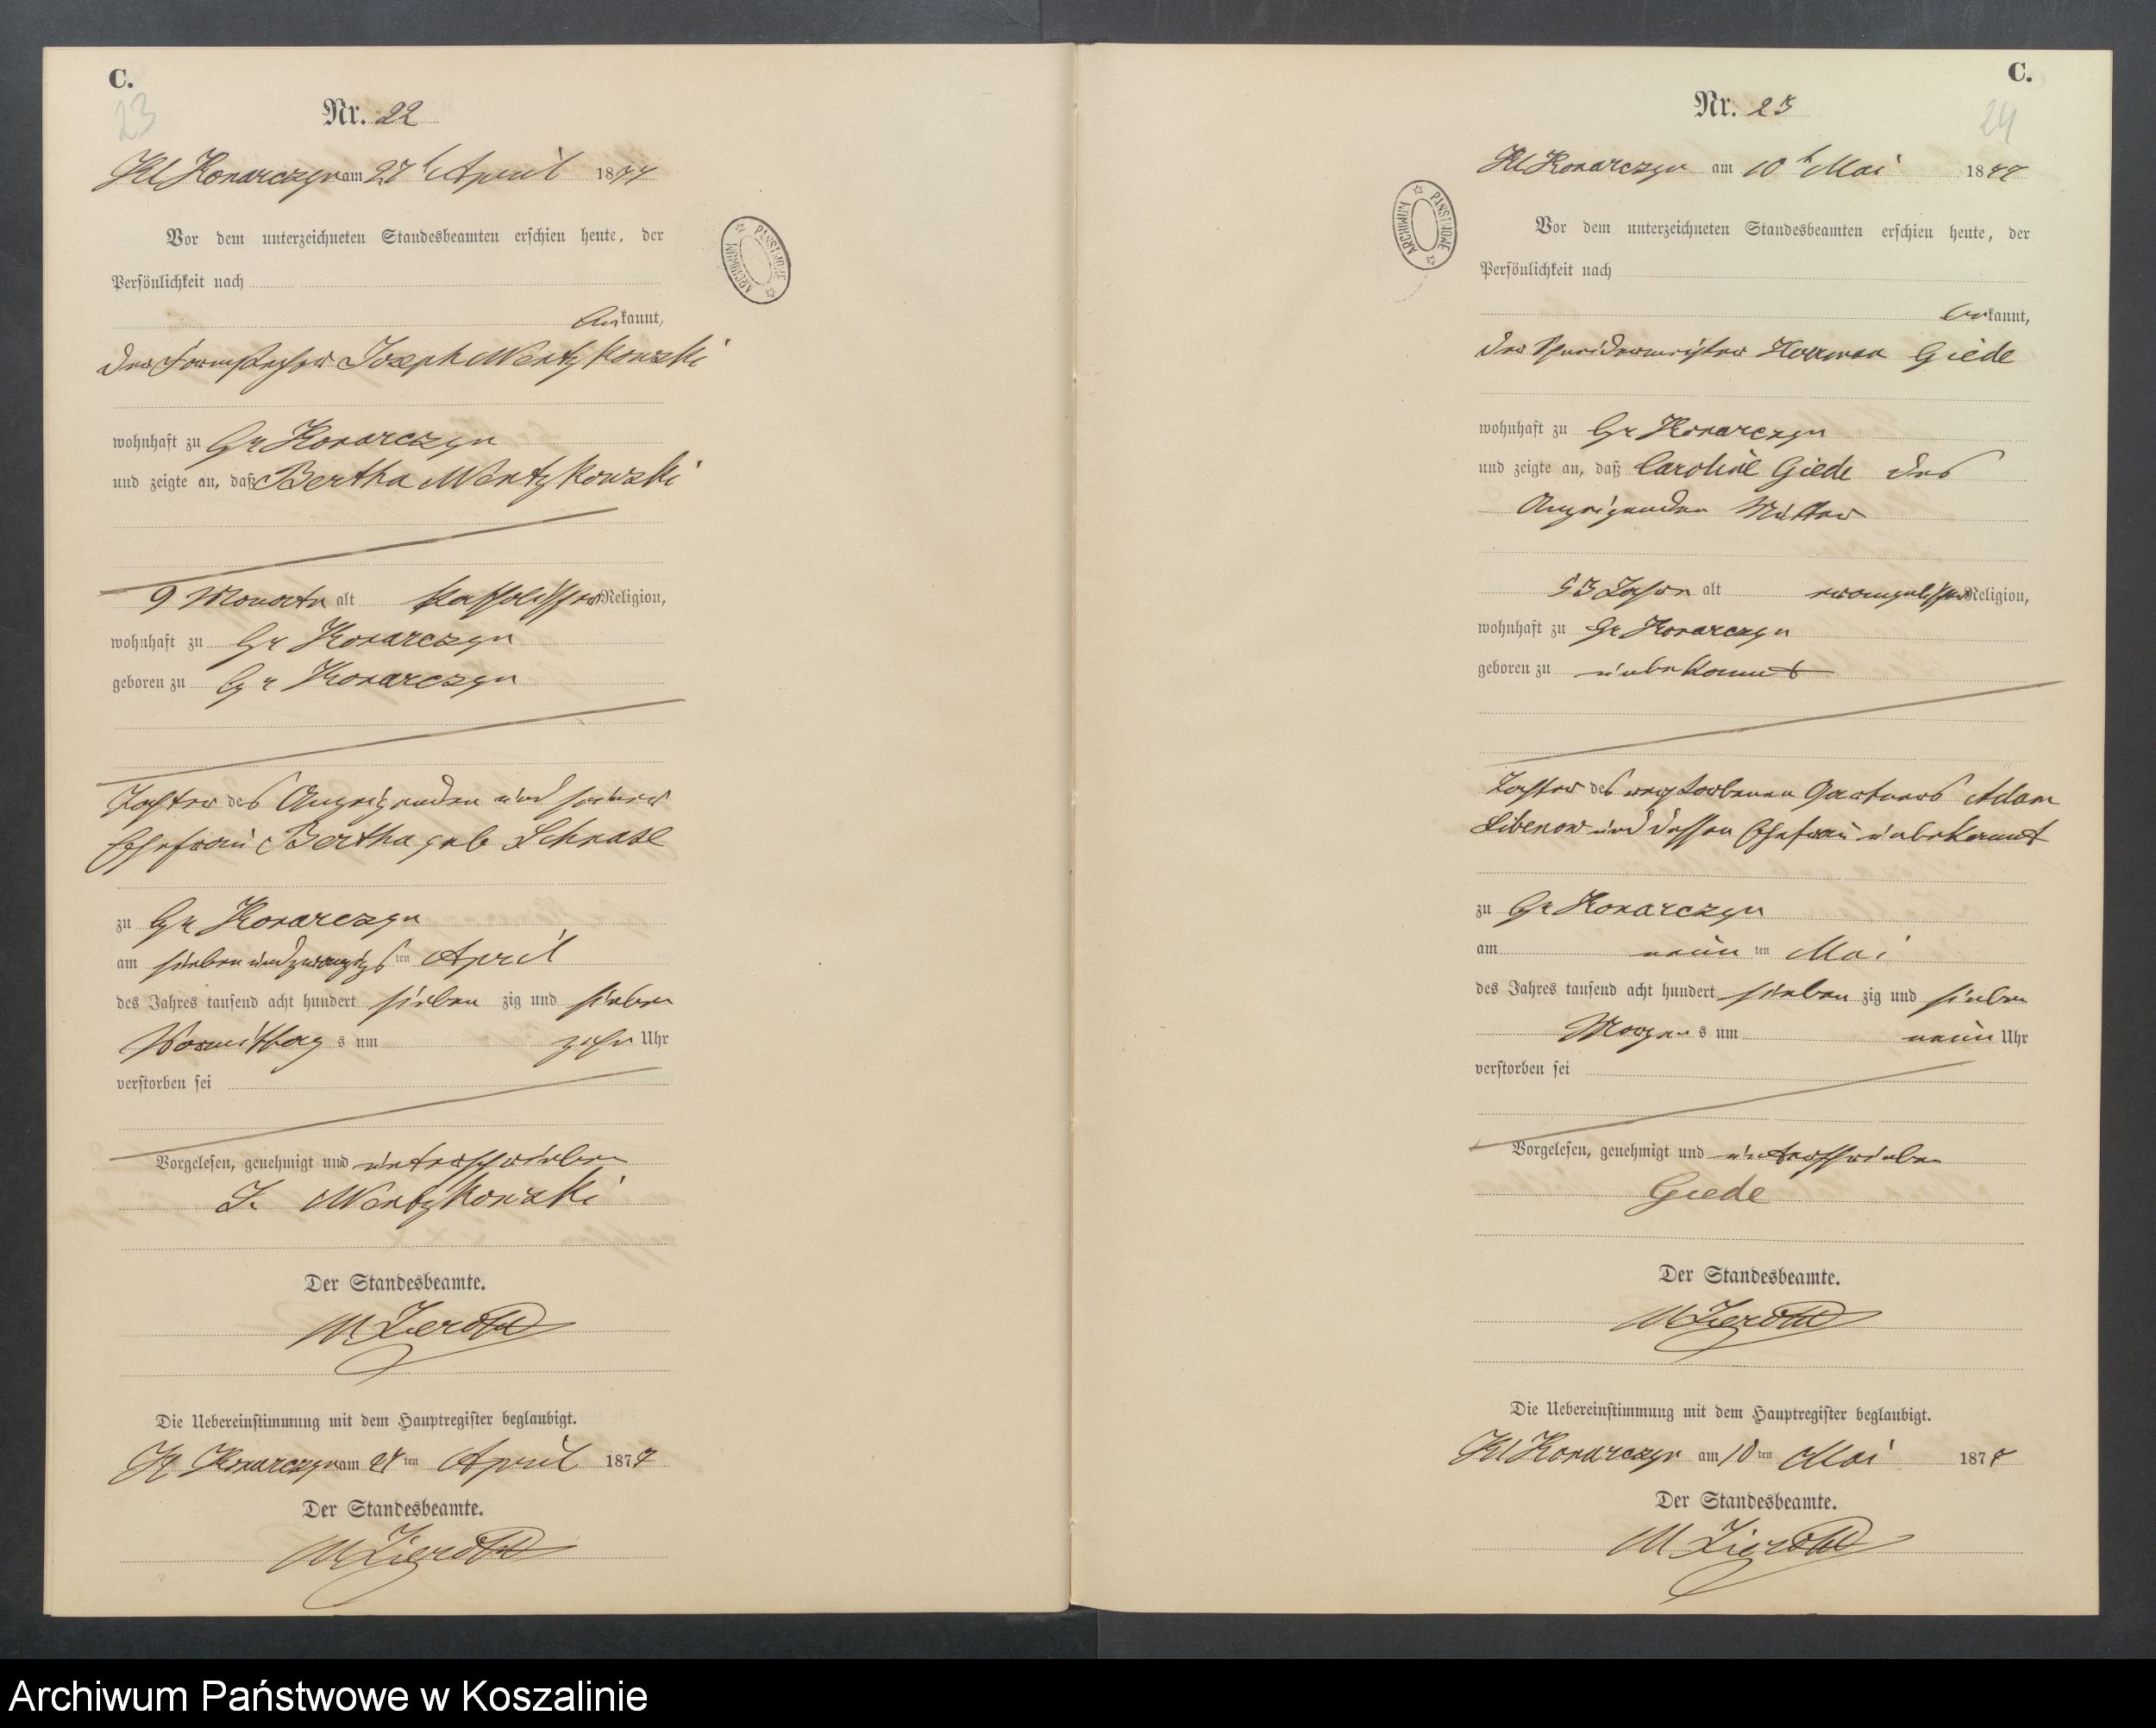 C.
23
Nr. 22
Kl Konarczyn am 27t April 1877
Vor dem unterzeichneten Standesbeamten erschien heute, der
Persönlichkeit nach
bekannt,
der Joseph Mentzkowski
wohnhaft zu Gr Konarczyn
und zeigte an, daß Bertha Mentzkowski
9 Monate alt katholischer Religion,
wohnhaft zu Gr Konarczyn
geboren zu Gr Konarczyn
Tochter des Anzeigenden und seiner
Ehefrau Bertha geb Schnase
zu Gr Konarczyn
am sieben und zwanzigsten April
des Jahres tausend acht hundert sieben zig und sieben
Vormittags um zehn Uhr
verstorben sei
Vorgelesen, genehmigt und unterschrieben
J. Mentzkowski
Der Standesbeamte.
M Zieroth
Die Uebereinstimmung mit dem Hauptregister beglaubigt.
Kl Konarczyn am 27ten April 1877
Der Standesbeamte.
M Zieroth
ARCHIWUM PAŃSTWOWE
C.
24
Nr. 23
Kl Konarczyn am 10t Mai 1877
Vor dem unterzeichneten Standesbeamten erschien heute, der
Persönlichkeit nach
bekannt,
der Schneidermeister Herrman Giede
wohnhaft zu Gr Konarczyn
und zeigte an, daß Caroline Giede des
Anzeigenden Mutter
53 Jahre alt evangelischer Religion,
wohnhaft zu Gr Konarczyn
geboren zu unbekannt
Tochter des verstorbenen Gärtners Adam
Libenow und dessen Ehefrau unbekannt
zu Gr Konarczyn
am neun ten Mai
des Jahres tausend acht hundert sieben zig und sieben
Morgens um neun Uhr
verstorben sei
Vorgelesen, genehmigt und unterschrieben
Giede
Der Standesbeamte.
M Zieroth
Die Uebereinstimmung mit dem Hauptregister beglaubigt.
Kl Konarczyn am 10ten Mai 1877
Der Standesbeamte.
M Zieroth
ARCHIWUM PAŃSTWOWE
Archiwum Państwowe w Koszalinie